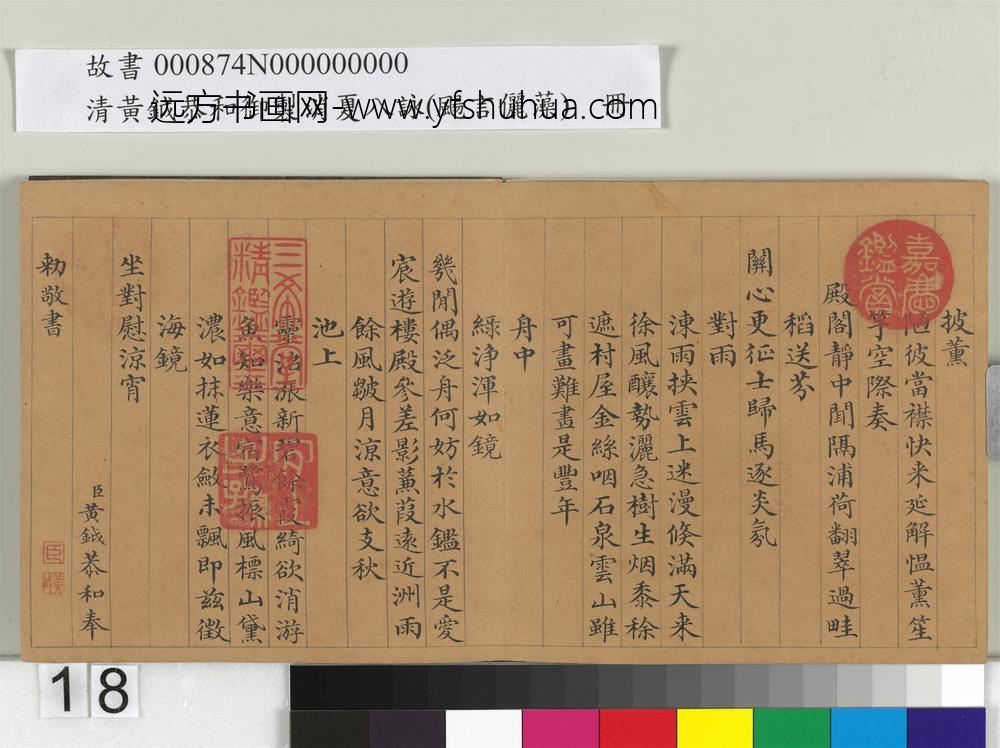 故書 000874N000000000
清黃鉞恭和御製
远方书画网-www.yfshuhua.com
披薰
彼當襟快来延解愠薰笙
竽空際奏
殿閣靜中聞隔浦荷翻翠過畦
稻送芬
關心更征士歸馬逐炎氛
對雨
涷雨挟雲上迷漫倐滿天来
徐風釀勢灑急樹生烟黍稌
遮村屋金絲咽石泉雲山雖
可畫難畫是豐年
舟中
緑浄渾如鏡
幾閒偶泛舟何妨於水鑑不是愛
宸遊樓殿參差影蒹葭遠近洲雨
餘風皺月涼意欲支秋
池上
靈沼漲新碧餘霞綺欲消游
魚知樂意宿鷺振風標山黛
濃如抹蓮衣斂未飄即兹徴
海鏡
坐對慰涼宵
臣黄鉞恭和奉
勅敬書
嘉慶鑑賞
三希堂精鑑璽
宜子孫
臣
18